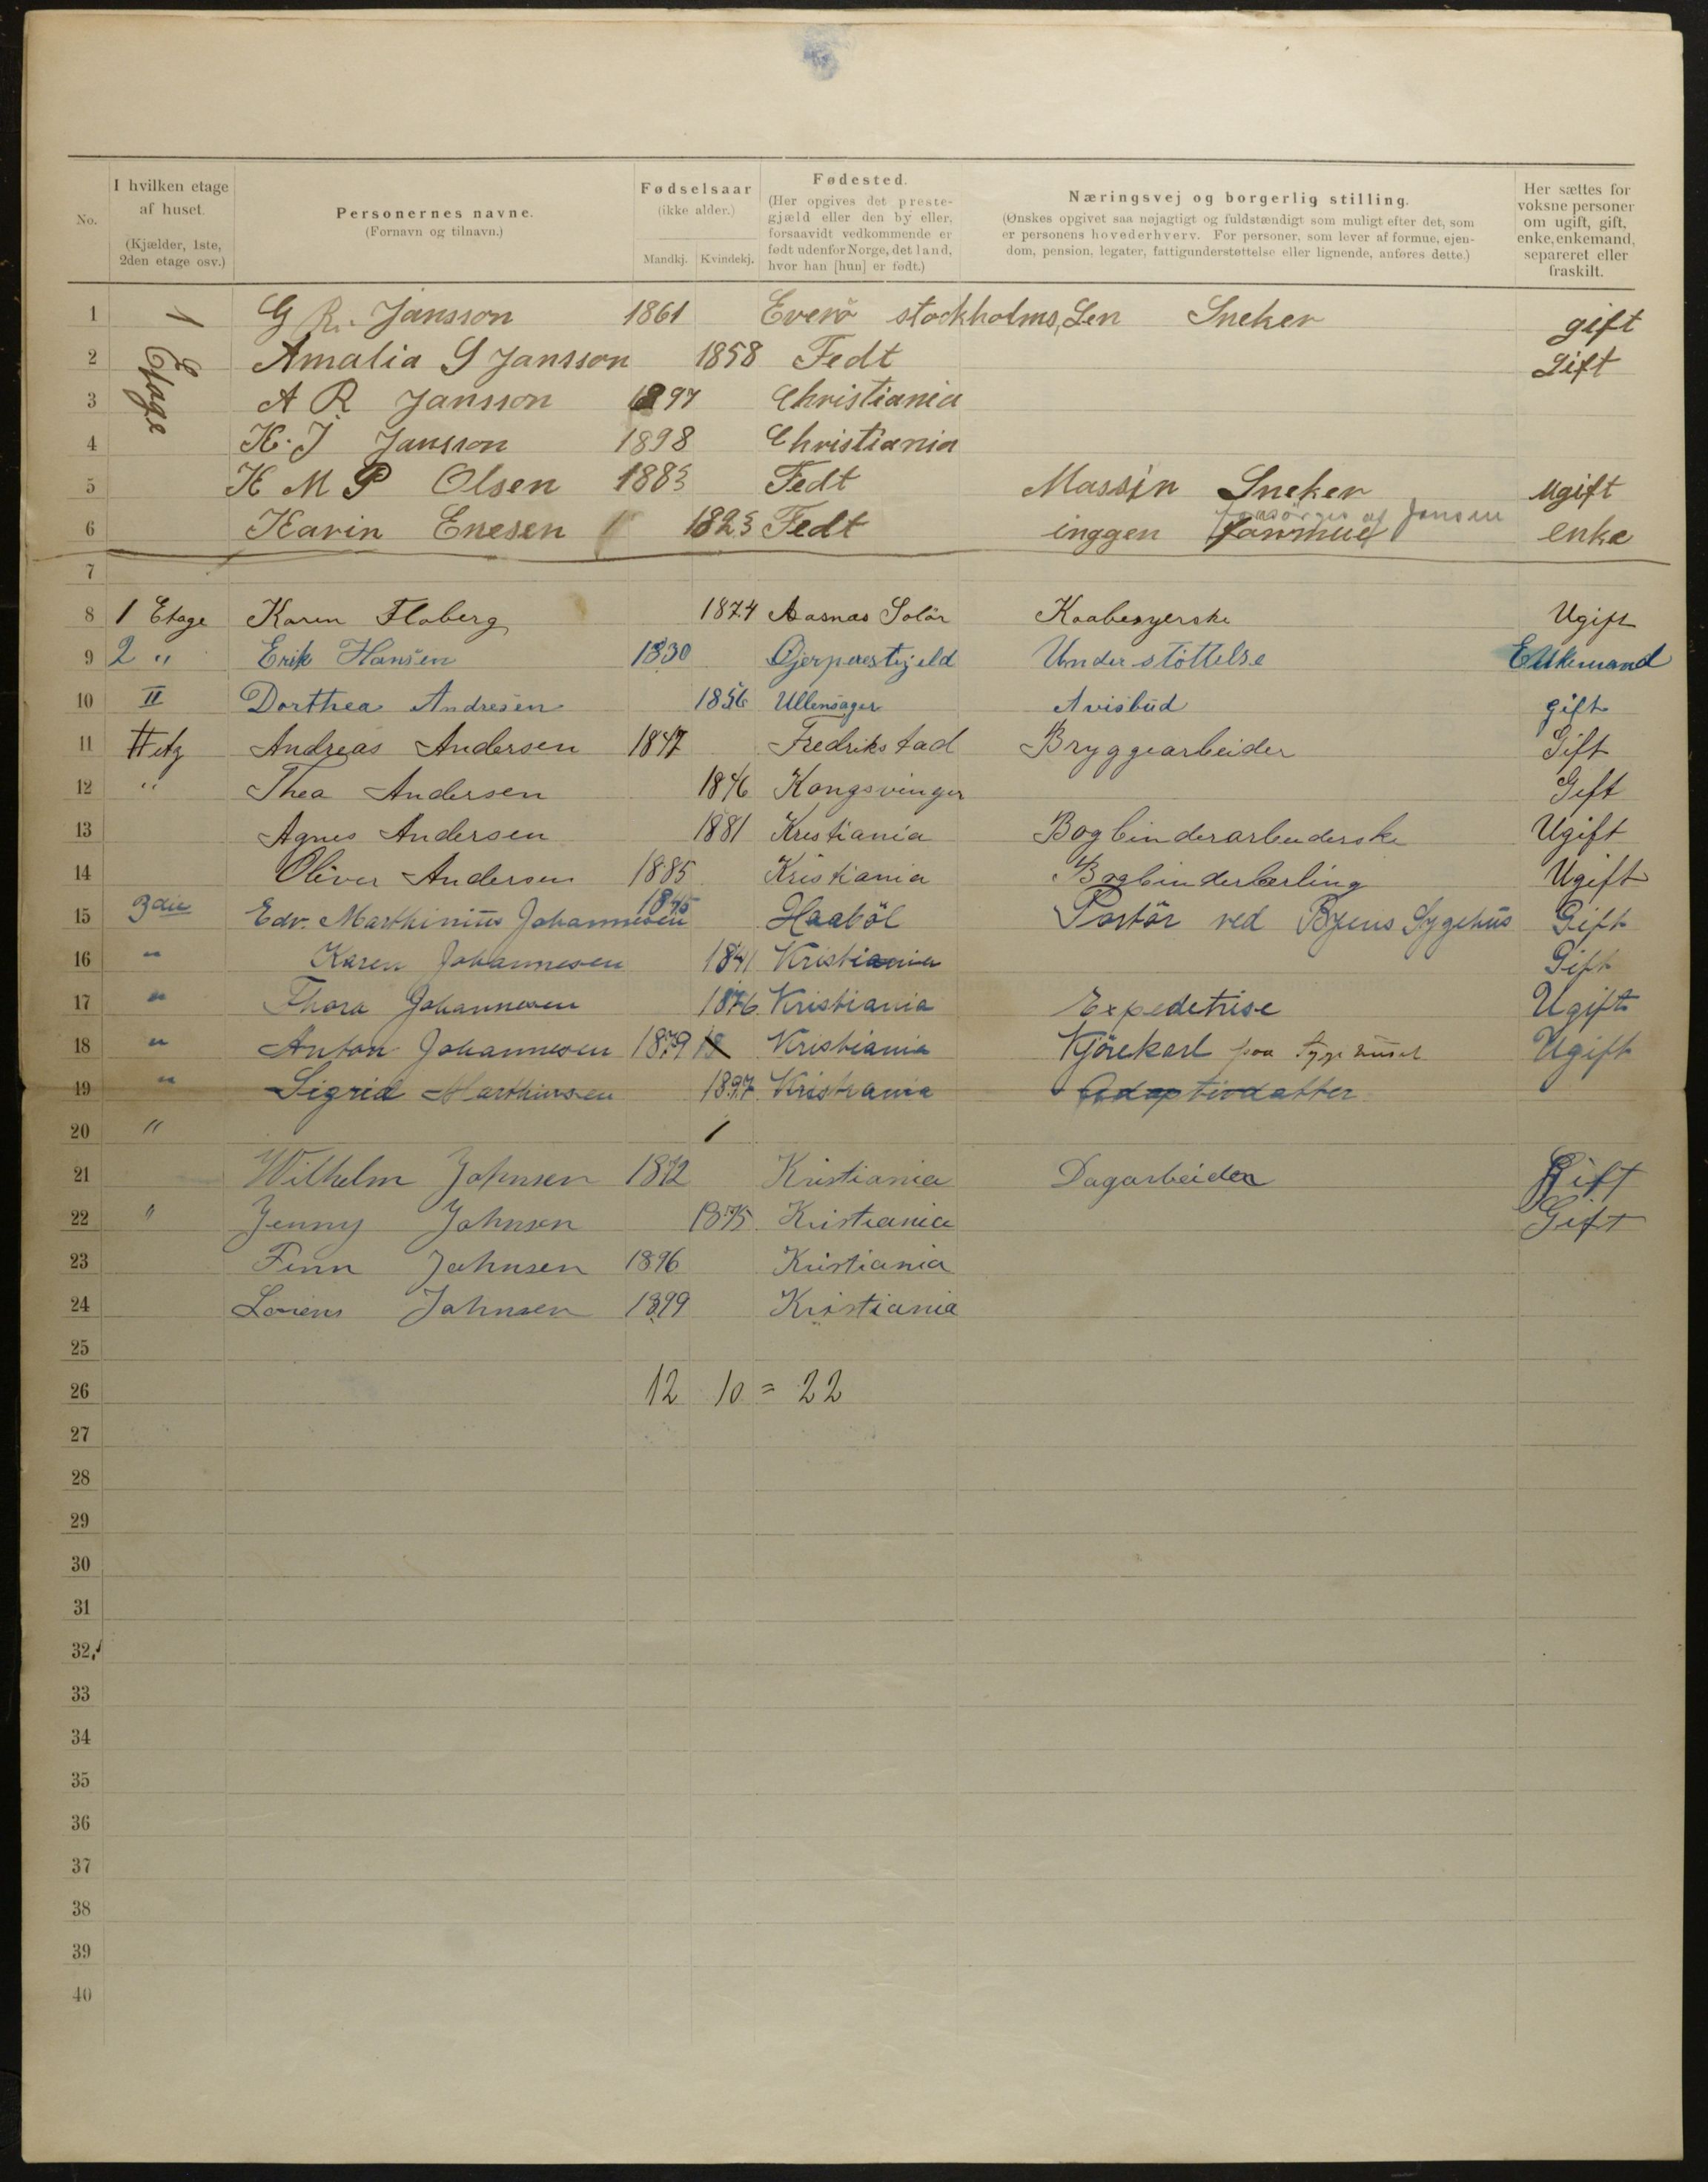 No. I hvilken etage af huset. (Kjælder, 1ste, 2den etage osv.) Personernes navne. (Fornavn og tilnavn.) Fødselsaar (ikke alder.) Mandkj. Kvindekj. Fødested. (Her opgives det prestegjæld eller den by eller, forsaavidt vedkommende er født udenfor Norge, det land, hvor han [hun] er født.) Næringsvej og borgerlig stilling. (Ønskes opgivet saa nøjagtigt og fuldstændigt som muligt efter det, som er personens hovederhverv. For personer, som lever af formue, ejendom, pension, legater, fattigunderstøttelse eller lignende, anføres dette.) Her sættes for voksne personer om ugift, gift, enke, enkemand, separeret eller fraskilt.
1 1 Etage G R. Jansson 1861 Everö stockholms Len Sneker gift
2 Amalia S Jansson 1858 Fedt Gift
3 A R Jansson 1897 Christiania
4 K. J Jansson 1898 Christiania
5 K M P Olsen 1883 Fedt Massin Sneker ugift
6 Karin Enesen 1823 Fedt inggen formue forsörges af Jansen enke
7
8 1 Etage Karen Floberg 1874 Aasnas Solör Kaabesyerske Ugift
9 2 " Erik Hansen 1830 Gjerperestejeld Understöttelse Enkemand
10 II Dorthea Andresen 1856 Ullensager Avisbud gift
11 II etg Andreas Andersen 1847 Fredrikstad Bryggearbeider Gift
12 " Thea Andersen 1846 Kongsvinger Gift
13 Agnes Andersen 1881 Kristiania Bogbinderarbeiderske Ugift
14 Oliver Andersen 1885 Kristiania Bogbinderlærling Ugift
15 3die Edv. Marthinius Johannesen 1845 Haaböl Portör ved Byens Sygehus Gift
16 " Karen Johannesen 1841 Kristiania Gift
17 " Thora Johannesen 1876 Kristiania Expedetrise Ugift
18 " Anton Johannesen 1879 18 Kristiania Kjörekarl paa Sygehuset Ugift
19 " Sigrid Marthinsen 1897 Kristiania Adoptivdatter
20 "
21 Wilhelm Johnsen 1872 Kristiania Dagarbeider Gift
22 " Jenny Johnsen 1875 Kristiania Gift
23 Finn Johnsen 1896 Kristiania
24 Lorens Johnsen 1899 Kristiania
25
26 12 10 = 22
27
28
29
30
31
32
33
34
35
36
37
38
39
40